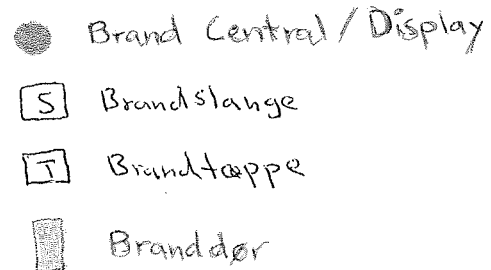 Brand Central / Display
S Brandslange
T Brandtæppe
Branddør